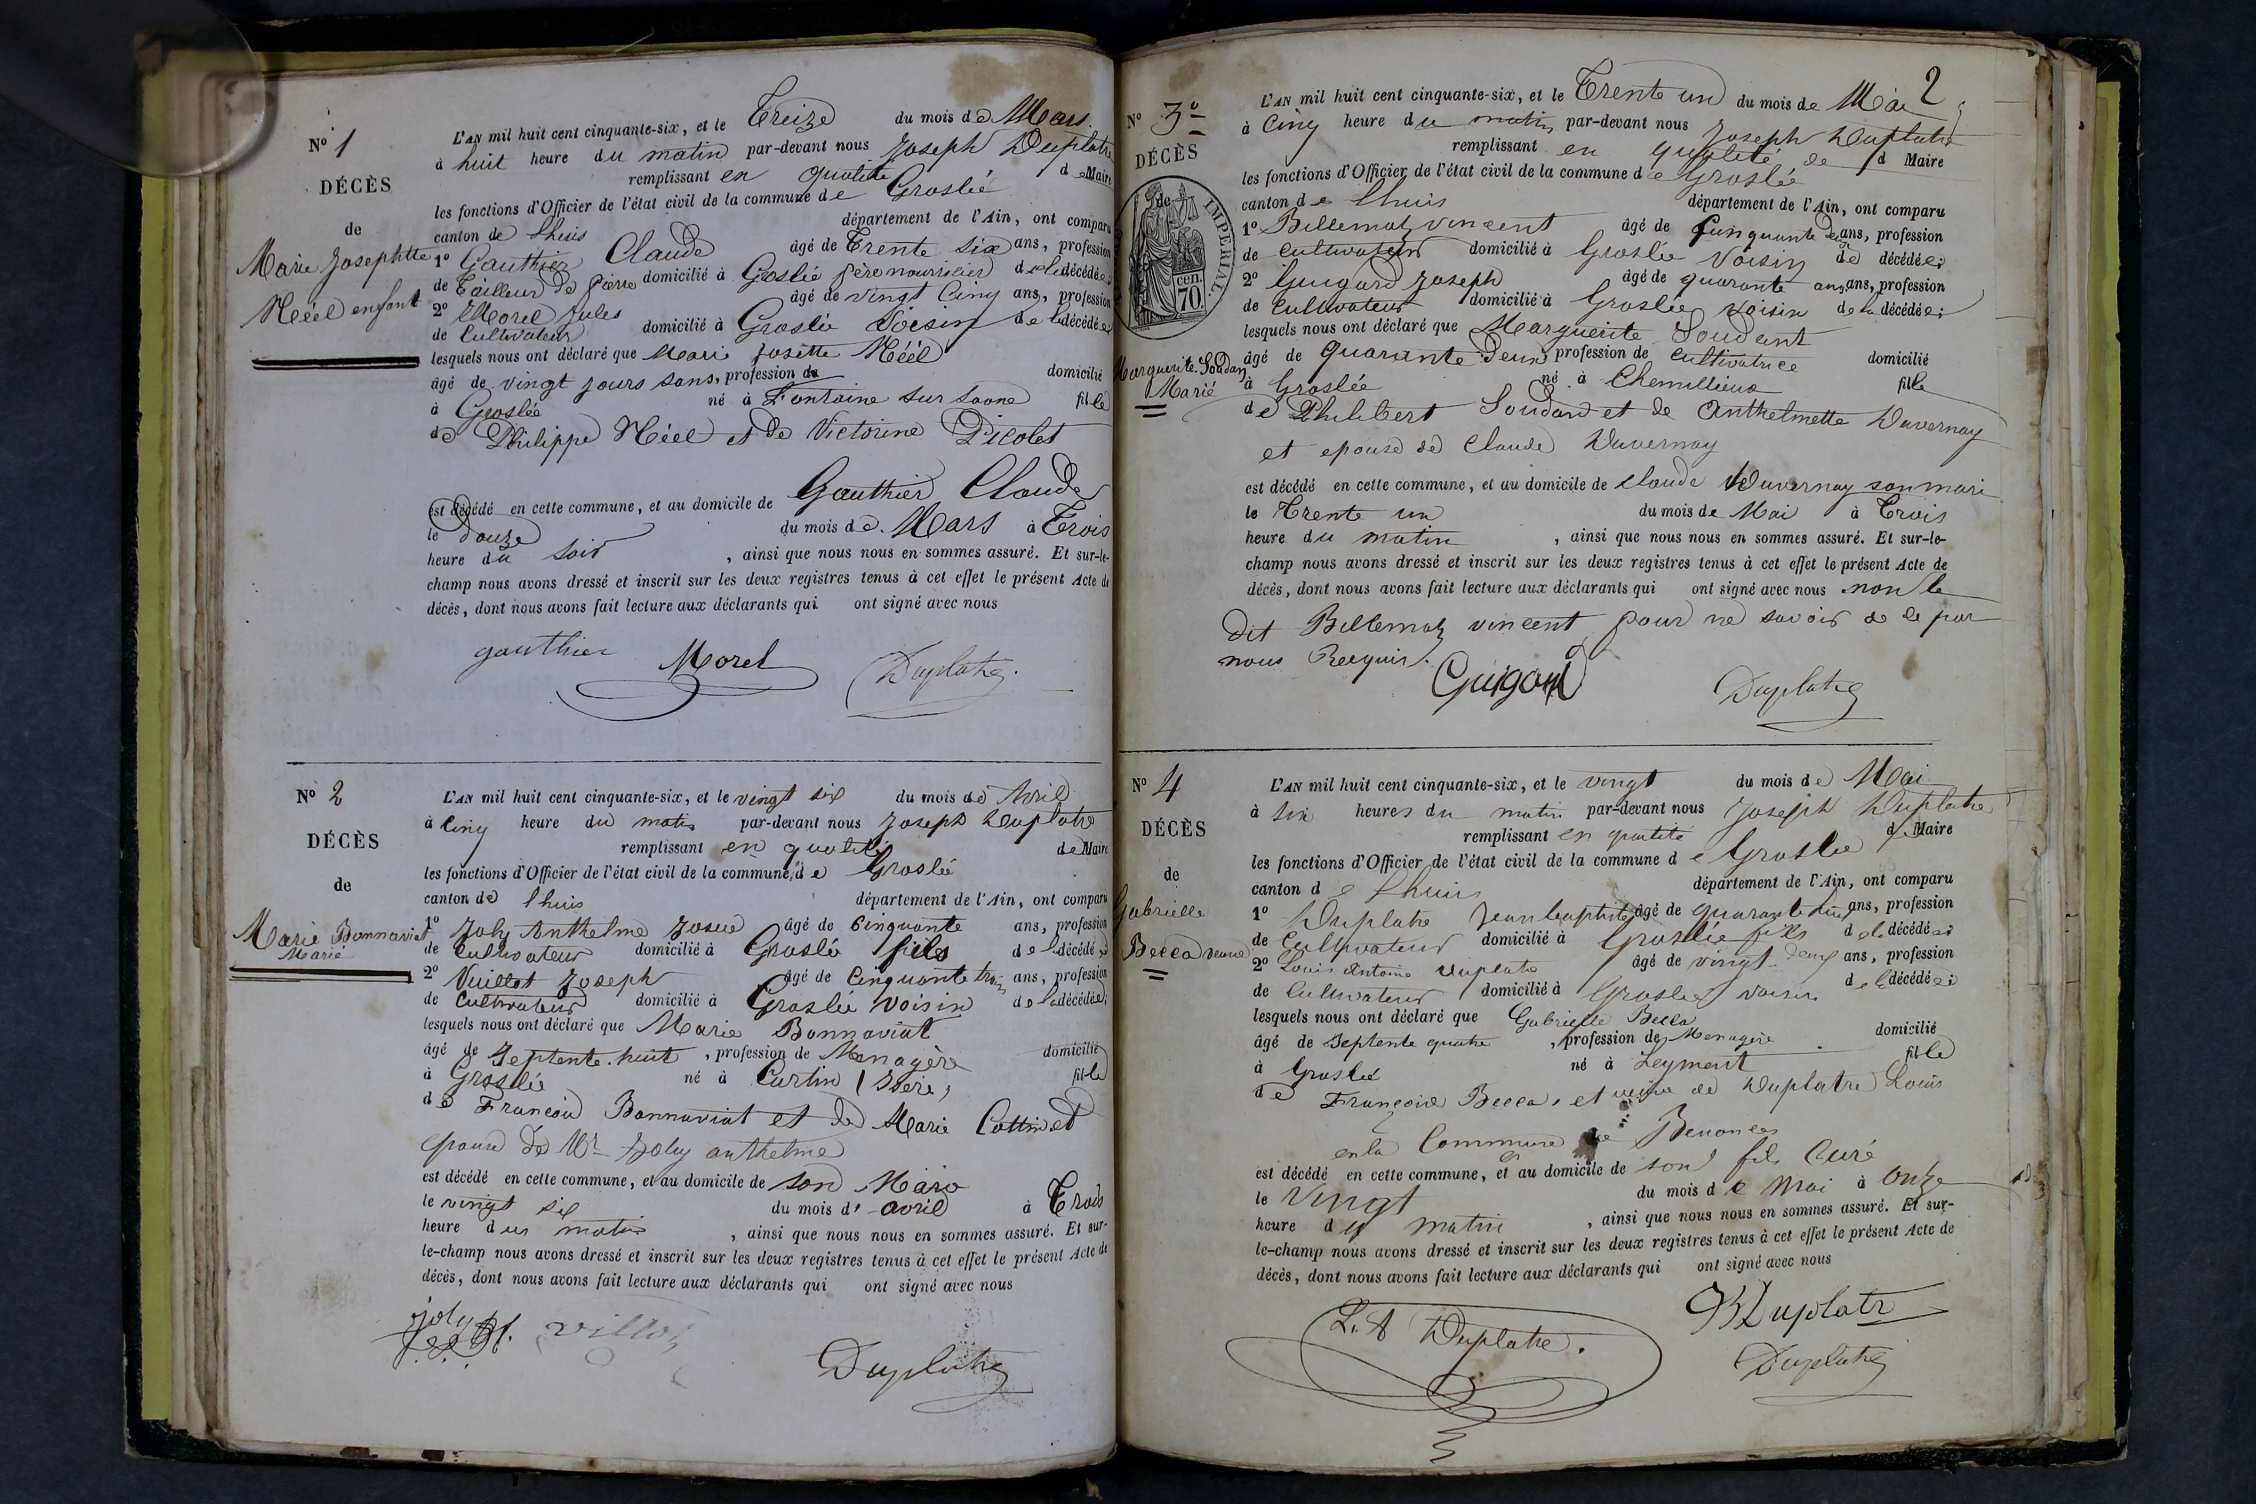 N° 1
DÉCÈS
de
Marie Josephtte
Néél enfant
L'AN mil huit cent cinquante-six, et le Treize du mois de Mars
à huit heure du matin par-devant nous Joseph Duplatre
remplissant en qualité de Maire
les fonctions d'Officier de l'état civil de la commune de Groslée
canton de Lhuis département de l'Ain, ont comparu
1° Gauthier Claude âgé de Trente six ans, profession
de Tailleur de pierre domicilié à Goslée père nourricier de la décédée;
2° Morel Jules âgé de vingt Cinq ans, profession
de Cultivateur domicilié à Groslée Voisin de la décédée
lesquels nous ont déclaré que Marie Josette Néél
âgé de vingt jours sans, profession de domicilié
à Groslée né à Fontaine sur Saone fille
de Philippe Néel et de Victorine Picolet
est décédé en cette commune, et au domicile de Gauthier Claude
le Douze du mois de Mars à Trois
heure du soir, ainsi que nous nous en sommes assuré. Et sur-le-
champ nous avons dressé et inscrit sur les deux registres tenus à cet effet le présent Acte de
décès, dont nous avons fait lecture aux déclarants qui ont signé avec nous
gauthier Morel Duplatre
N° 2
DÉCÈS
de
Marie Bonnaviat
Marié
L'AN mil huit cent cinquante-six, et le vingt six du mois de Avril
à Cinq heure du matin par-devant nous Joseph Duplatre
remplissant en qualité de Maire
les fonctions d'Officier de l'état civil de la commune de Groslée
canton de Lhuis département de l'Ain, ont comparu
1° Joly Anthelme Josué âgé de Cinquante ans, profession
de Cultivateur domicilié à Groslée fils de la décédée
2° Vuillot Joseph âgé de Cinquante trois ans, profession
de Cultivateur domicilié à Groslée voisin de la décédée;
lesquels nous ont déclaré que Marie Bonnaviat
âgé de Septente-huit, profession de Menagère domicilié
à Groslée né à Curtin (Isère) fille
de François Bonnaviat et de Marie Cottin et
epouse de Mr Joly anthelme
est décédé en cette commune, et au domicile de son Mari
le vingt six du mois d' avril à Trois
heure du matin, ainsi que nous nous en sommes assuré. Et sur-
le-champ nous avons dressé et inscrit sur les deux registres tenus à cet effet le présent Acte de
décès, dont nous avons fait lecture aux déclarants qui ont signé avec nous
joly Duplatre
2
N° 3e
DÉCÈS
de
IMPÉRIAL.
cen.
70
Marguerite Soudan
Marié
L'AN mil huit cent cinquante-six, et le Trente un du mois de Mai
à Cinq heure du matin par-devant nous Joseph Duplatre
remplissant en qualité de d Maire
les fonctions d'Officier de l'état civil de la commune de Groslée
canton de Lhuis département de l'Ain, ont comparu
1° Billemaz vincent âgé de Cinquante deux ans, profession
de cultivateur domicilié à Groslée Voisin de décédée;
2° Guigard Joseph âgé de quarante ans ans, profession
de Cultivateur domicilié à Groslée voisin de la décédée;
lesquels nous ont déclaré que Marguerite Soudant
âgé de quarante deux profession de cultivatrice domicilié
à Groslée né à Chemillieux fille
de Philibert Soudant et de Anthelmette Duvernay
et epouse de Claude Duvernay
est décédé en cette commune, et au domicile de Claude Duvernay son mari
le Trente un du mois de Mai à Trois
heure du matin, ainsi que nous nous en sommes assuré. Et sur-le-
champ nous avons dressé et inscrit sur les deux registres tenus à cet effet le présent Acte de
décès, dont nous avons fait lecture aux déclarants qui ont signé avec nous non le
dit Billemaz vincent pour ne savoir de ce par
nous Recquis.
Guigard Duplatre
N° 4
DÉCÈS
de
Gabrielle
Becca veuve
L'AN mil huit cent cinquante-six, et le vingt du mois de Mai
à six heures du matin par-devant nous Joseph Duplatre
remplissant en qualité d Maire
les fonctions d'Officier de l'état civil de la commune de Groslée
canton de Lhuis département de l'Ain, ont comparu
1° Duplatre Jean baptiste âgé de quarante ans, profession
de Cultivateur domicilié à Groslée fils de la décédée;
2° Louis Antoine Duplatre âgé de vingt-deux ans, profession
de Cultivateur domicilié à Groslée voisin de la décédée;
lesquels nous ont déclaré que Gabrielle Becca
âgé de Septente quatre, profession de Menagère domicilié
à Groslée né à Leyment fille
de François Becca, et veuve de Duplatre Louis
en la Commune de Benonces
est décédé en cette commune, et au domicile de son fils Curé
le Vingt du mois de Mai à onze
heure du matin, ainsi que nous nous en sommes assuré. Et sur-
le-champ nous avons dressé et inscrit sur les deux registres tenus à cet effet le présent Acte de
décès, dont nous avons fait lecture aux déclarants qui ont signé avec nous
L. A Duplatre. Duplatr
Duplatre